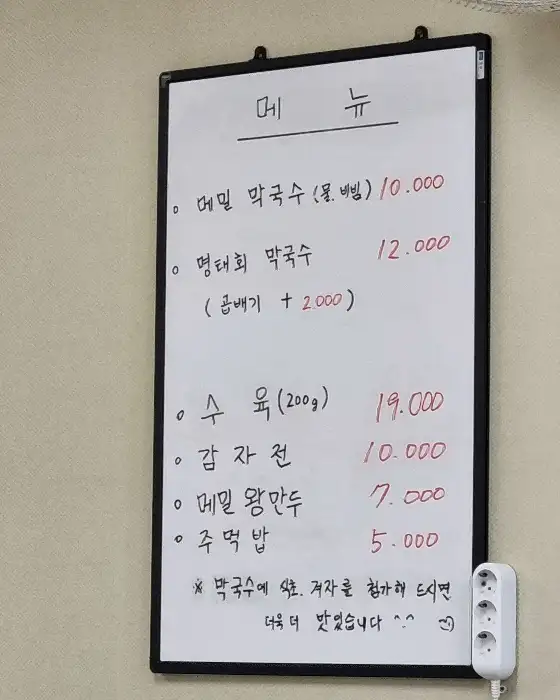 메 뉴
o 메밀 막국수 (물.비빔) 10.000
o 명태회 막국수 12.000
(곱배기 + 2.000)
o 수 육 (200g) 19.000
o 감 자 전 10.000
o 메밀 왕만두 7.000
o 주 먹 밥 5.000
※ 막국수에 식초. 겨자를 첨가해 드시면
더욱 더 맛있습니다 ^.^